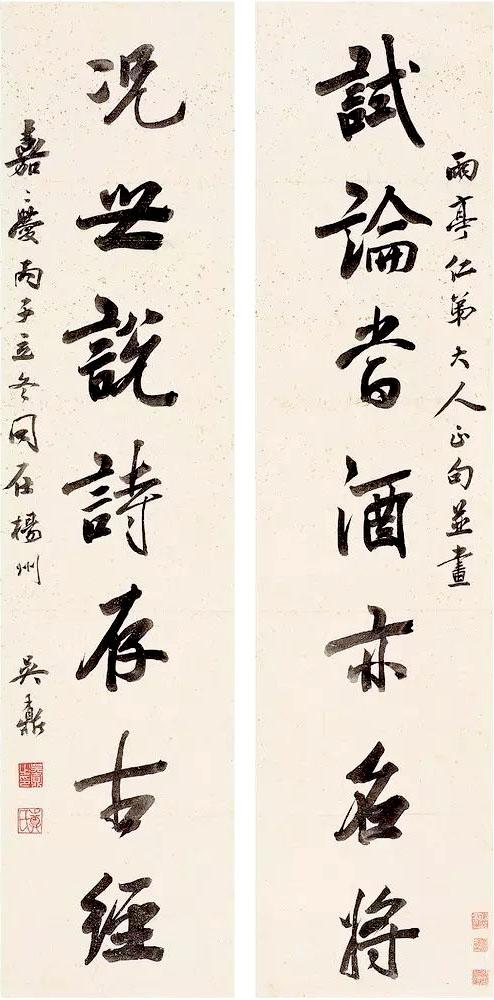 雨亭仁第大人正句並書
試論嘗酒亦名將
況世說詩存古經
嘉慶丙子立冬同在楊州 吳鼒